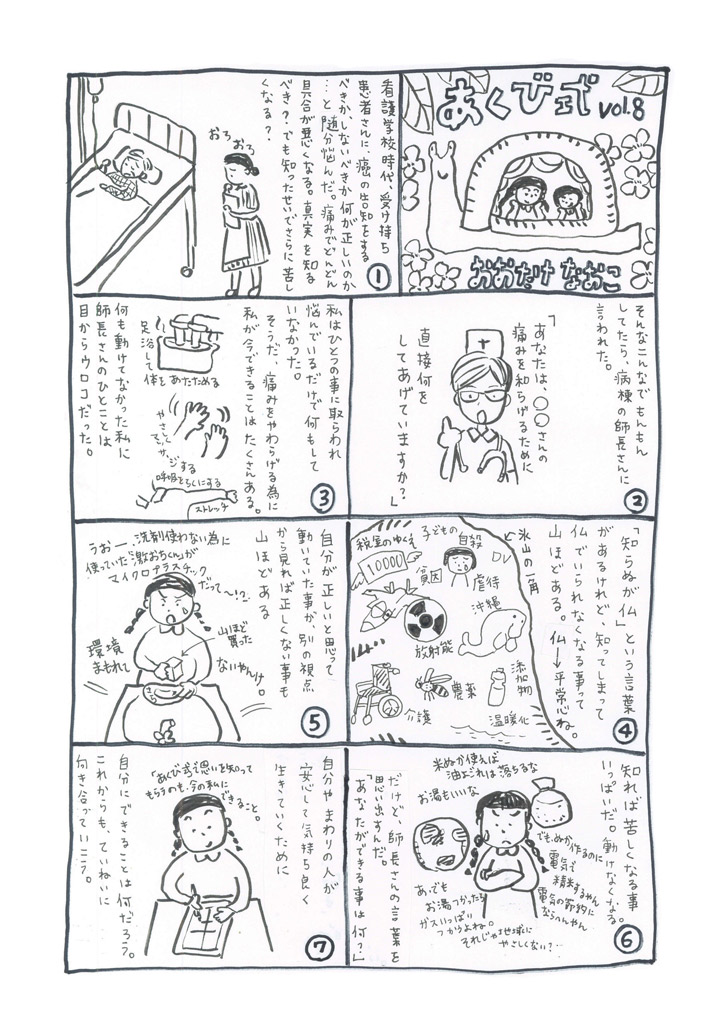 あくび式 vol.8
おおたけなおこ
看護学校時代、受け持ち
患者さんに、癌の告知をする
べきか、しないべきか何が正しいのか
…と随分悩んだ。痛みでどんどん
具合が悪くなる。真実を知る
べき?でも知ったせいでさらに苦し
くなる?
おろ
おろ
①
そんなこんなでもんもん
してたら、病棟の師長さんに
言われた。
「あなたは、○○さんの
痛みを和らげるために
直接何を
してあげていますか?」
②
私はひとつの事に取らわれ
悩んでいるだけで何もして
いなかった。
そうだ、痛みをやわらげる為に
私が今できることはたくさんある。
足浴して
体をあたためる
やさしく
マッサージする
呼吸をらくにする
ストレッチ
何も動けてなかった私に
師長さんのひとことは
目からウロコだった。
③
「知らぬが仏」という言葉
があるけれど、知ってしまって
仏でいられなくなる事って
山ほどある。仏→平常心ね。
氷山の一角
子どもの自殺
DV
税金のゆくえ
10000
貧困
虐待
沖縄
放射能
添加物
農薬
介護
温暖化
④
自分が正しいと思って
動いていた事が、別の視点
から見れば正しくない事も
山ほどある
うおー、洗剤使わない為に
使っていた激おちくんが
マイクロプラスチック
だって〜!?
山ほど
買った
環境
まもれて
ないやんけ。
⑤
知れば苦しくなる事
いっぱいだ。動けなくなる。
米ぬか使えば
油よごれは落ちるな
お湯もいいな
でも、ぬか作るのに
電気で
精米するやん
電気の節約に
ならへんやん
あ、でも
お湯つかったら
ガスいっぱい
つかうよね。
それじゃ地球に
やさしくない?…
だけど、師長さんの言葉を
思い出すんだ。
「あなたができる事は何?」
⑥
自分やまわりの人が
安心して気持ち良く
生きていくために
「あくび式で思いを知って
もらうのも、今の私に
できること。
自分にできることは何だろう。
これからも、ていねいに
向き合っていこう。
⑦